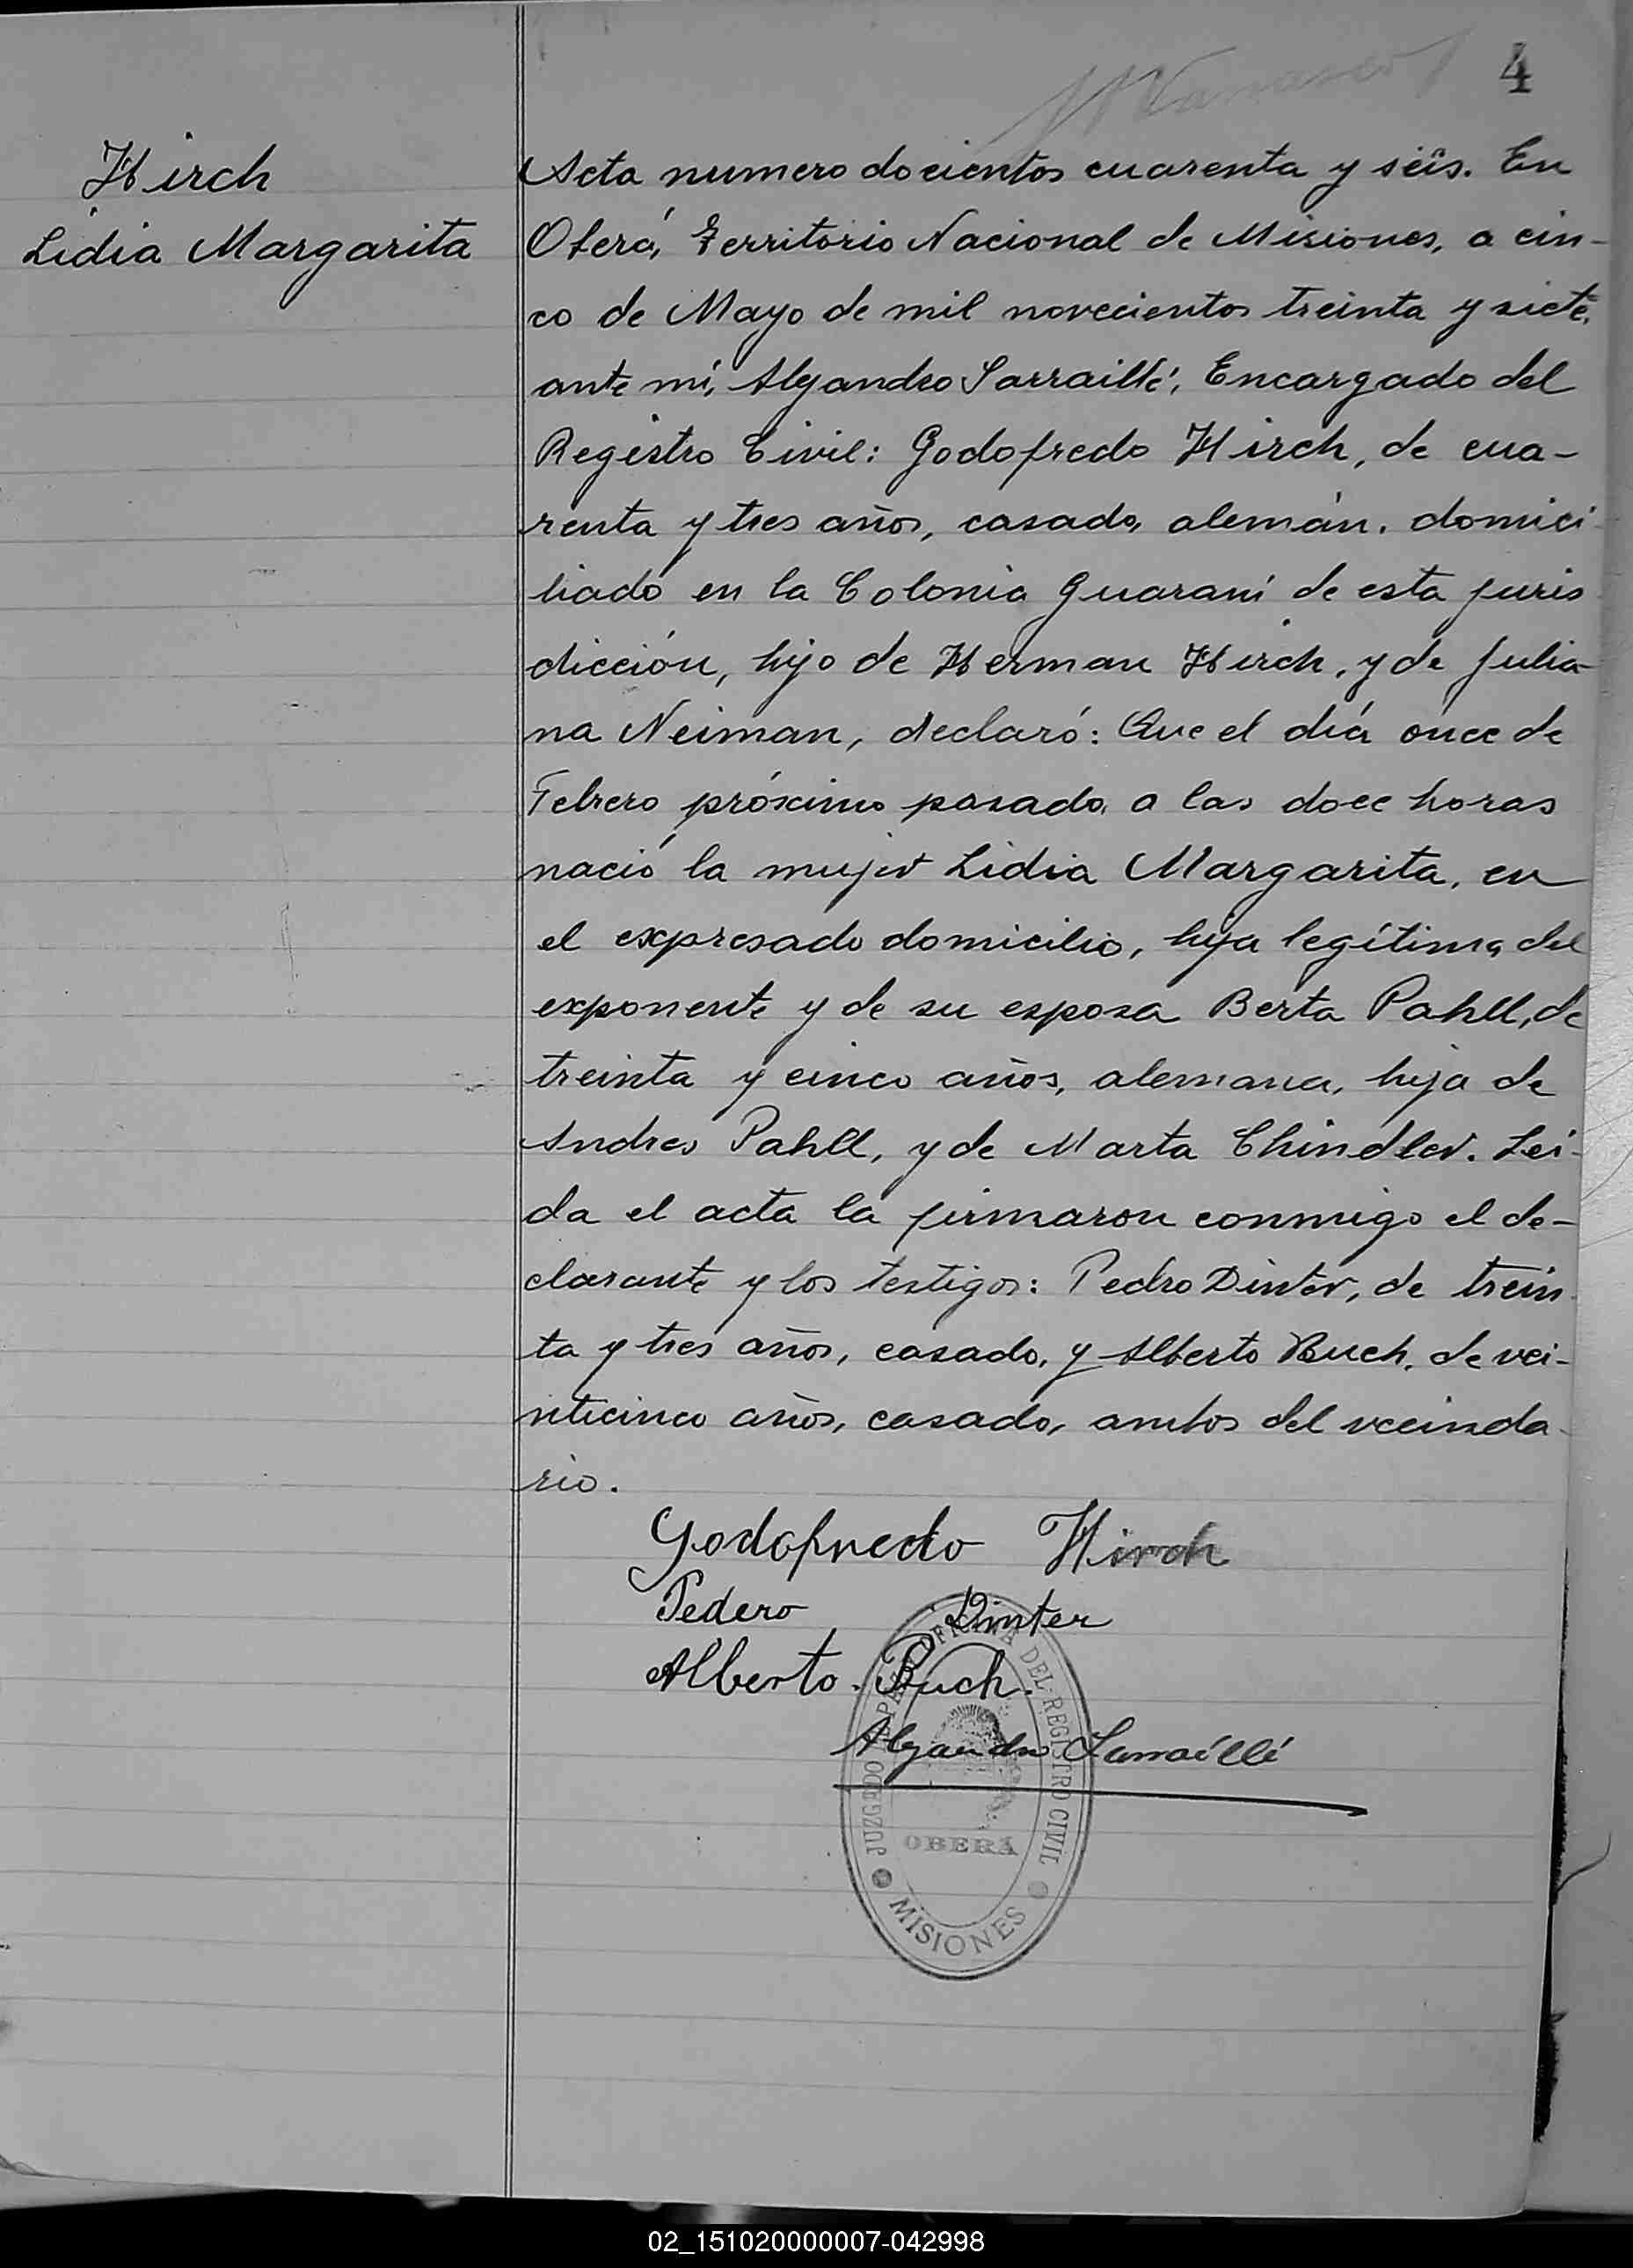 4
Hirch
Lidia Margarita
Acta numero docientos cuarenta y seis. En
Oberá, Territorio Nacional de Misiones, a cin-
co de Mayo de mil novecientos treinta y siete,
ante mí, Alejandro Sarraillé, Encargado del
Registro Civil: Godofredo Hirch, de cua-
renta y tres años, casado, alemán, domici
liado en la Colonia Guaraní de esta juris
dicción, hijo de Herman Hirch, y de Julia-
na Neiman, declaró: Que el día once de
Febrero próximo pasado, a las doce horas
nació la mujer Lidia Margarita, en
el expresado domicilio, hija legítima del
exponente y de su esposa Berta Pahll, de
treinta y cinco años, alemana, hija de
Andres Pahll, y de Marta Chindler. Lei-
da el acta la firmaron conmigo el de-
clarante y los testigos: Pedro Dinter, de trein
ta y tres años, casado, y Alberto Buch, de vei-
nticinco años, casado, ambos del vecinda-
rio.
Godofredo Hirch
Pedero Dinter
Alberto. Buch.
Alejandro Sarraillé
JUZGADO DE PAZ Y OFICINA DEL REGISTRO CIVIL
OBERÁ
MISIONES
02_151020000007-042998